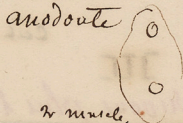 anodonte
2 muscle,